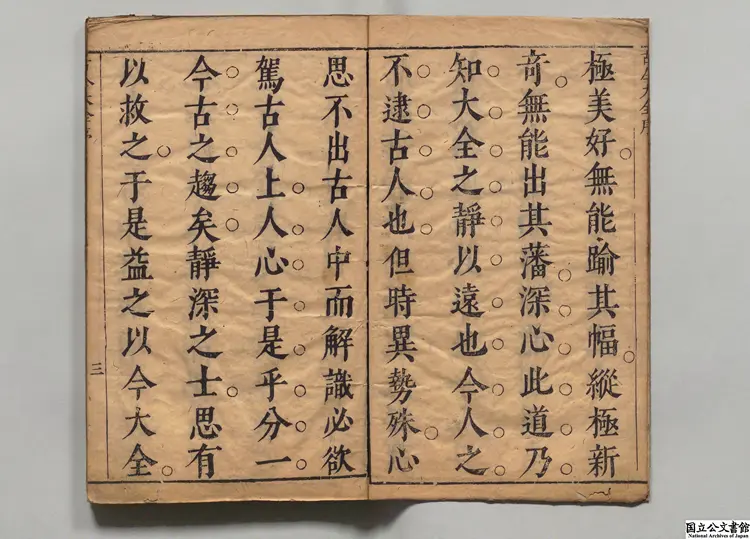 極美好無能踰其幅縱極新
奇無能出其藩深心此道乃
知大全之靜以遠也今人之
不逮古人也但時異勢殊心
思不出古人中而解識必欲
駕古人上人心于是乎分一
今古之趨矣靜深之士思有
以救之于是益之以今大全
三
国立公文書館
National Archives of Japan